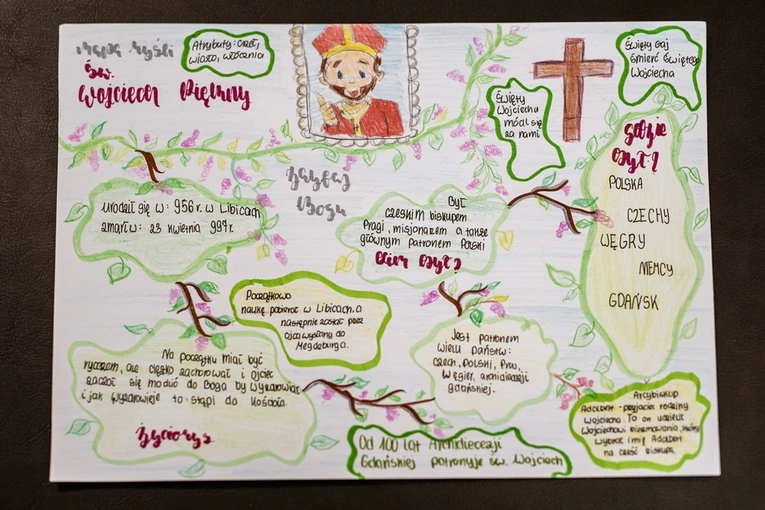 Mapa Myśli
Św.
Wojciech Piękny
Atrybuty: orzeł,
wiosło, włócznia
Święty Gaj
śmierć Świętego
Wojciecha
Święty
Wojciechu
módl się
za nami
Gdzie
był?
POLSKA
CZECHY
WĘGRY
NIEMCY
GDAŃSK
Zaufaj
Bogu
urodził się w: 956 r. w Libicach
zmarł w: 23 kwietnia 997r.
Był
czeskim biskupem
Pragi, misjonarzem a także
głównym patronem Polski
Kim był?
Początkowo
naukę pobierał w Libicach, a
następnie został przez
ojca wysłany do
Magdeburga.
Na początku miał być
rycerzem, ale ciężko zachorował i ojciec
zaczął się modlić do Boga by wyzdrowiał
i jak wyzdrowieje to wstąpi do Kościoła.
Życiorys
Jest patronem
wielu państw:
Czech, Polski, Prus,
Węgier, archidiecezji
gdańskiej.
Od 100 lat Archidiecezji
Gdańskiej patronuje św. Wojciech
Arcybiskup
Adalbert - przyjaciel rodziny
Wojciecha. To on udzielił
Wojciechowi bierzmowania, który
wybrał imię Adalbert
na cześć biskupa